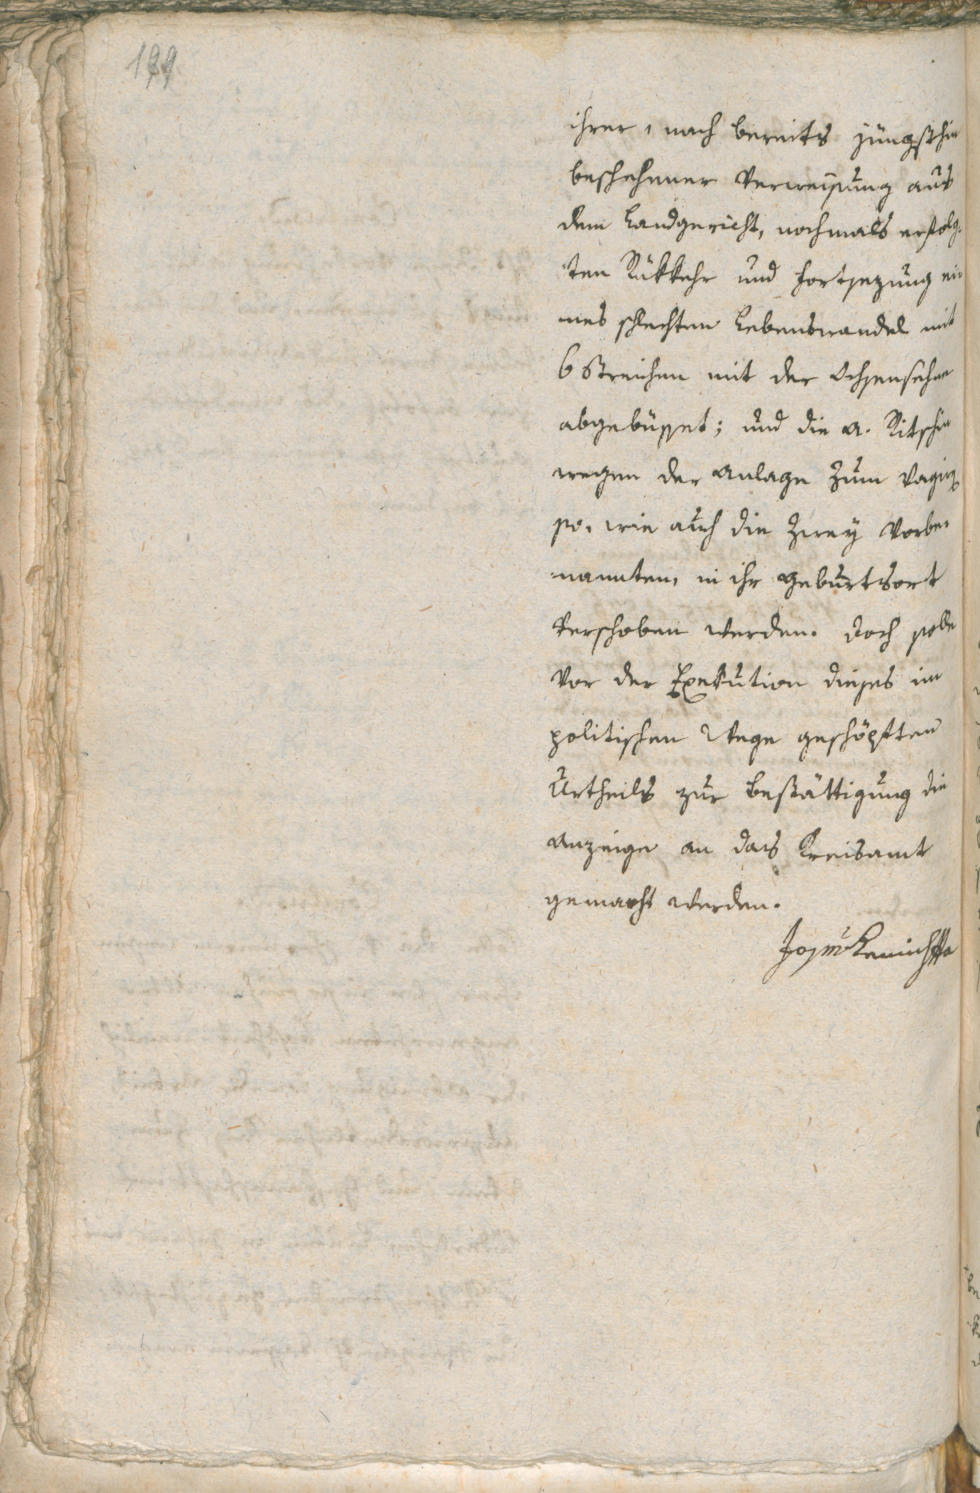 199
ihrer, nach bereits jüngsthin
beschehener Verweisung aus
dem Landgericht, nochmals erfolg-
ten Rükkehr und Fortsezung ei-
nes schlechten Lebenswandel mit
6 Streichen mit der Ochsensehne
abgebüsset; und die A. Ritschin
wegen der Anlage zum
so, wie auch die Zwey Vorbe-
nannten, in ihr Geburtsort
Verschoben werden. Doch solle
Vor der Exekution dieses im
politischen Wege geschöpften
Urtheils zur Bestättigung die
Anzeige an das Kreisamt
gemacht werden.